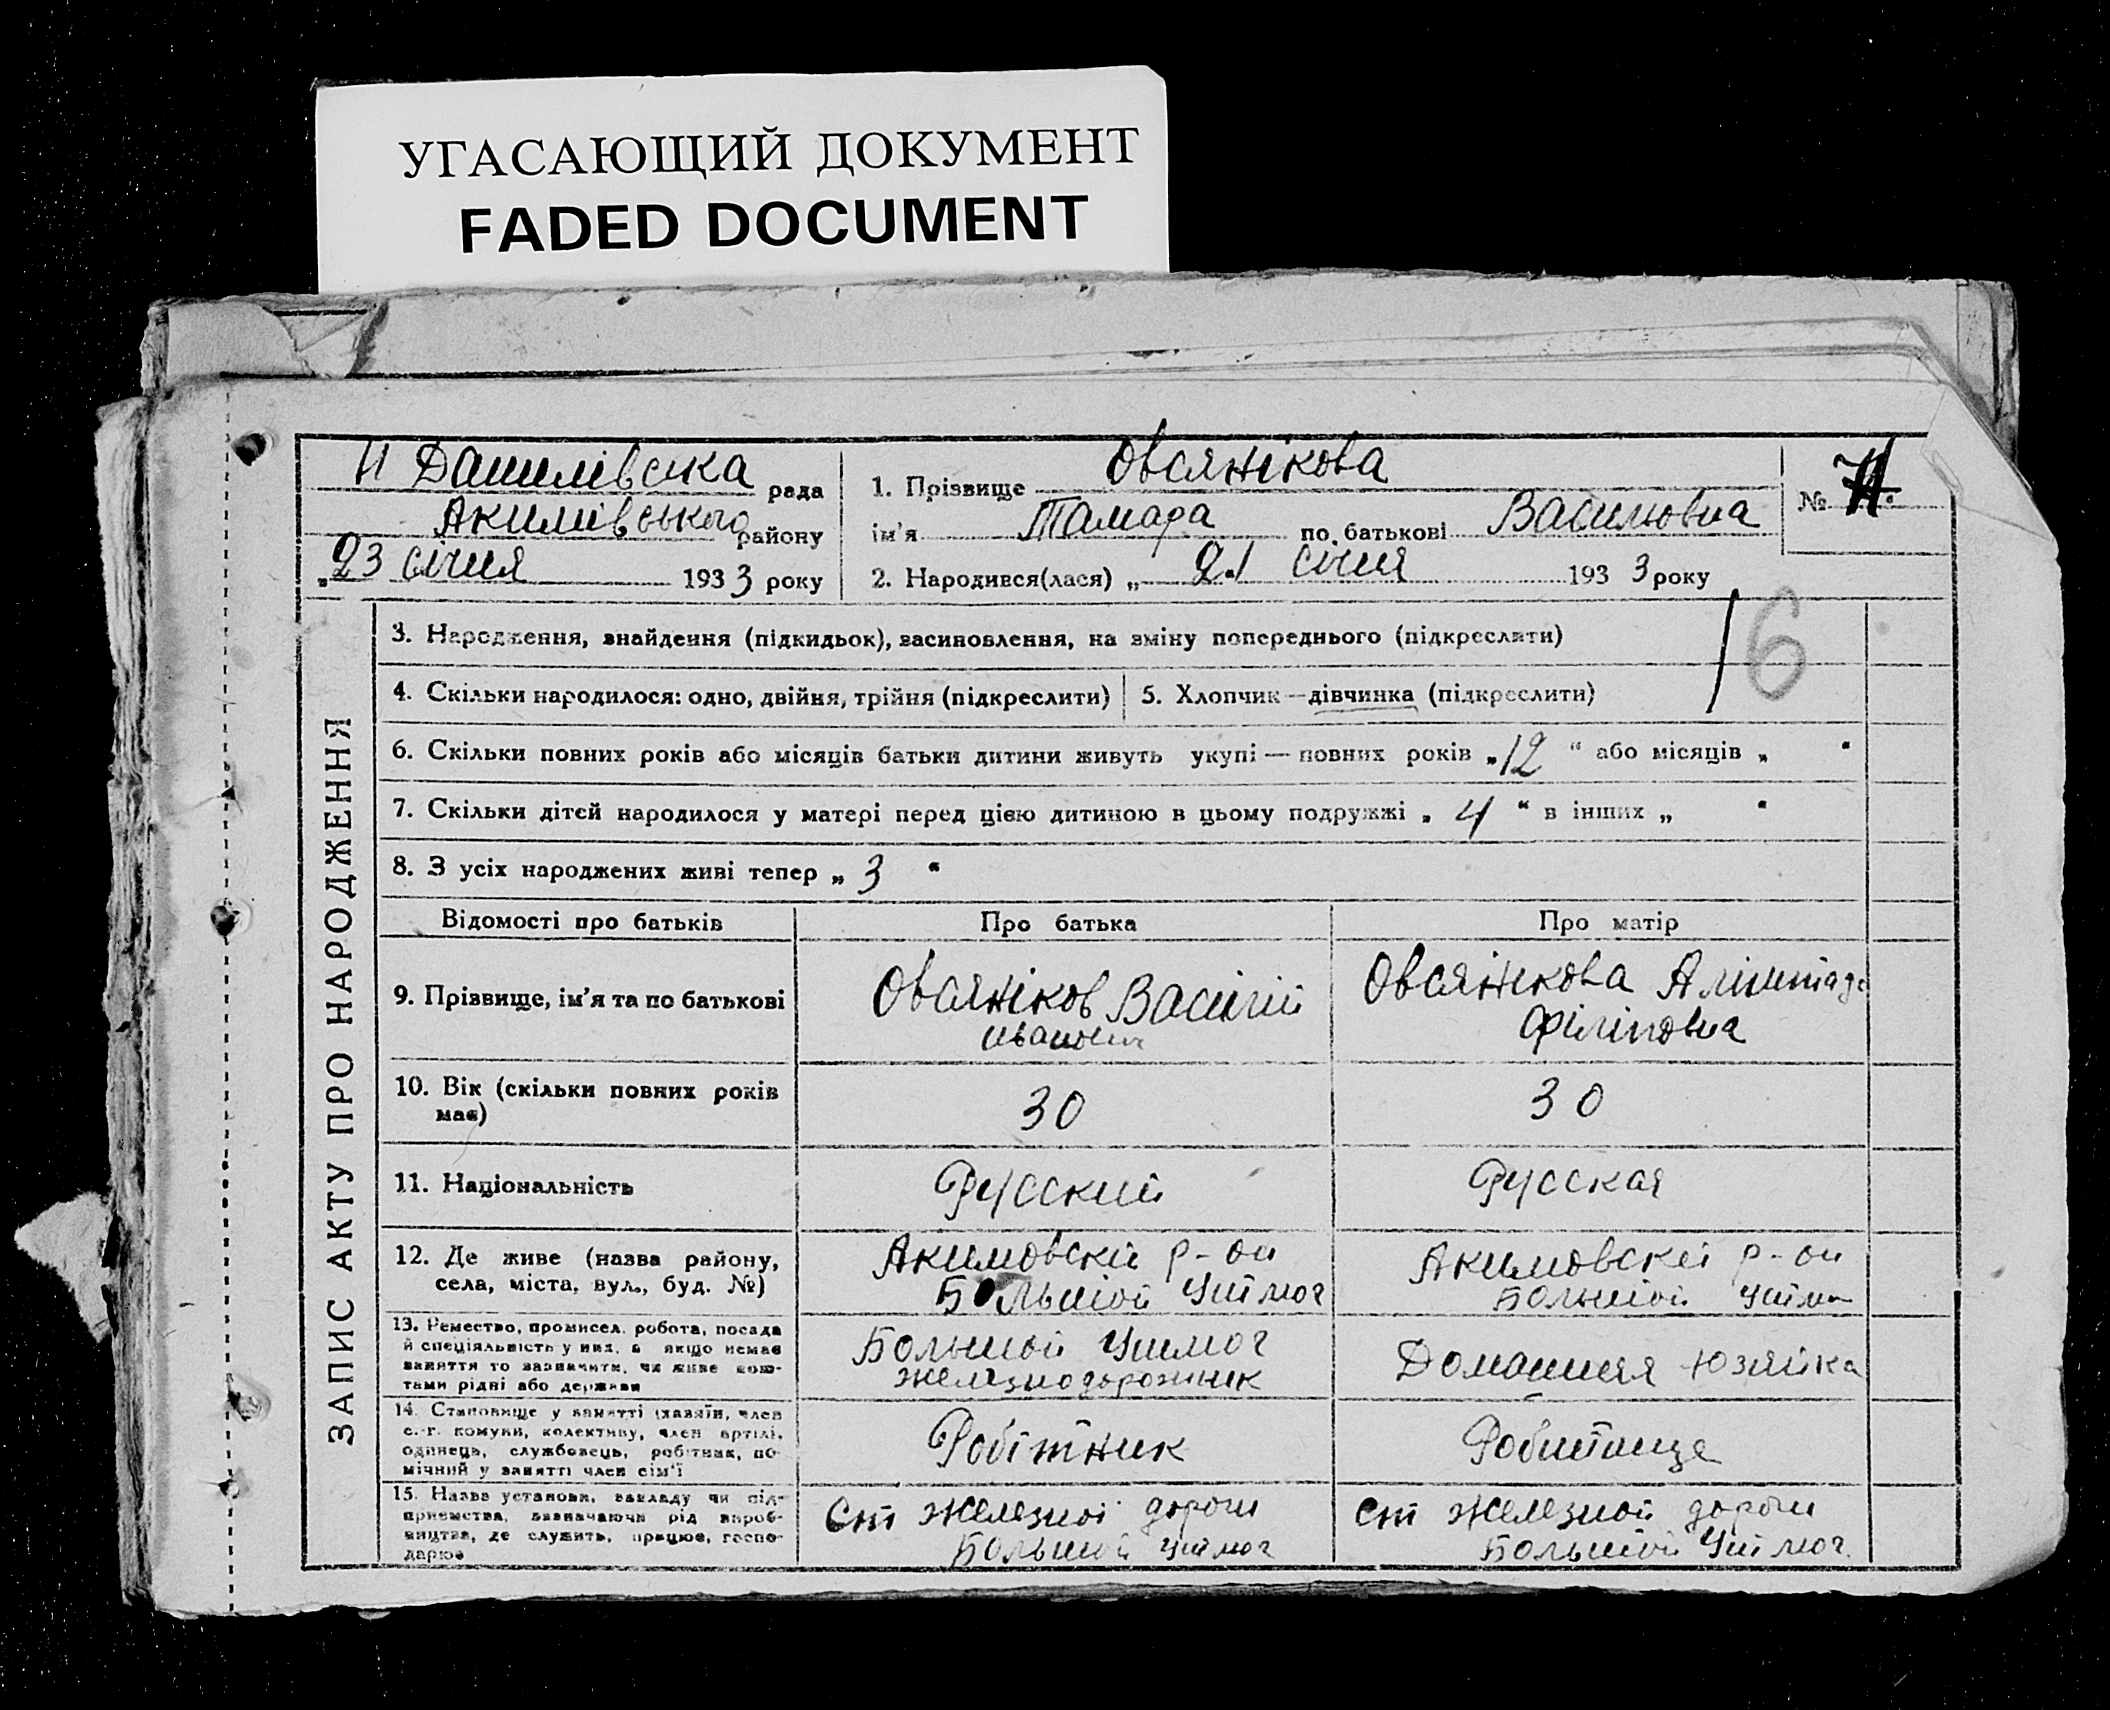 УГАСАЮЩИЙ ДОКУМЕНТ
FADED DOCUMENT
Н Данилівська рада
Акимівського району
„23 січня 1933 року
1. Прізвище Овсянікова
ім'я Тамара по батькові Василювна
2. Народився(лася) „21 січня 1933 року
№
16
ЗАПИС АКТУ ПРО НАРОДЖЕННЯ
3. Народження, знайдення (підкидьок), васиновлення, на зміну попереднього (підкреслити)
4. Скільки народилося: одно, двійня, трійня (підкреслити)
5. Хлопчик—дівчинка (підкреслити)
6. Скільки повних років або місяців батьки дитини живуть укупі — повних років „12 “ або місяців „ “
7. Скільки дітей народилося у матері перед цією дитиною в цьому подружжі „ 4 “ в інших „ “
8. З усіх народжених живі тепер „ 3 “
Відомості про батьків Про батька Про матір
9. Прізвище, ім'я та по батькові
Овсяніков Василій
Иванович
Овсянікова
Філіповна
10. Вік (скільки повних років
має)
30
30
11. Національність
Русский
Русская
12. Де живе (назва району,
села, міста, вул., буд. №)
Акимовскій р-он
Большой Утлюг
Акимовскій р-он
Большой
13. Ремество, промисел, робота, посада
й спеціяльність у них, а якщо немає
заняття то зазначити, чи живе кош-
тами рідні або держави
Большой Утлюг
железнодорожник
Домашняя хозяйка
14. Становище у занятті (хазяїн, член
с.-г. комуни, колективу, член артілі,
одинець, службовець, робітник, по-
мічний у занятті член сім'ї
Робітник
15. Назва установи, закладу чи під-
приємства, зазначаючи рід вироб-
ництва, де служить, працює, госпо-
дарює
Ст железной дороги
Большой Утлюг
Ст железной дороги
Большой Утлюг